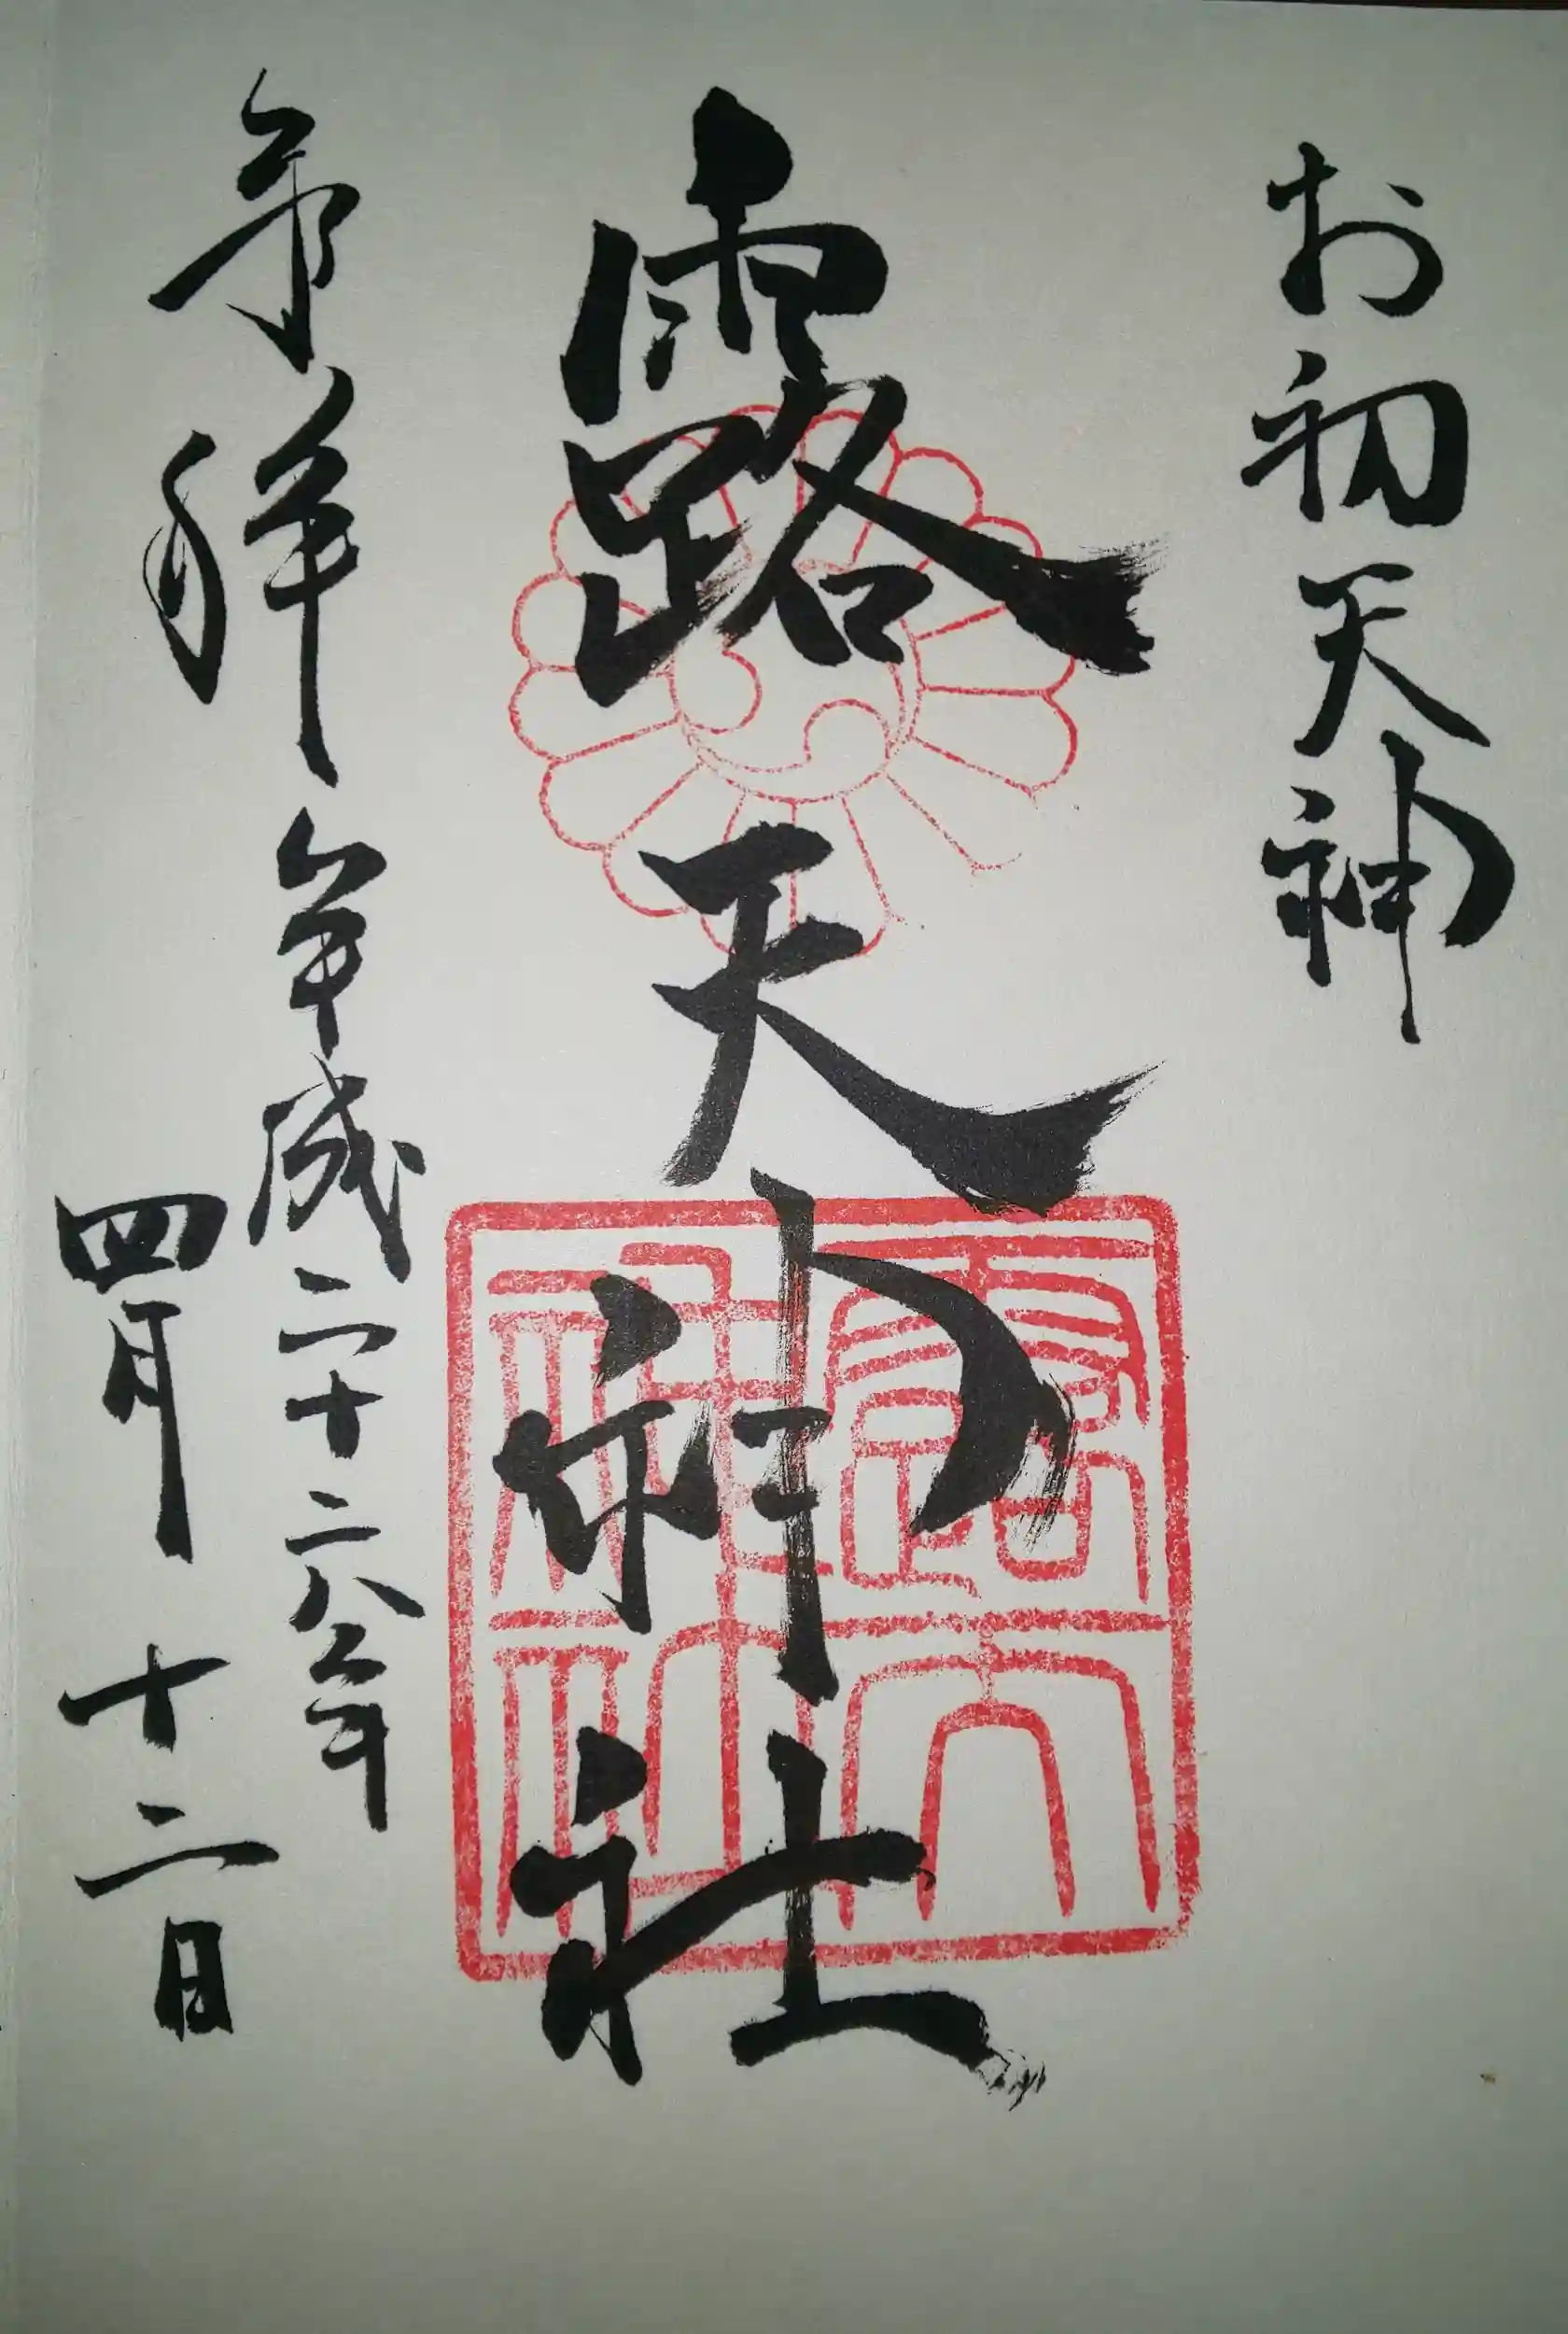 お初天神
露天神社
参拜
平成二十六年
四月十二日
露天
神社